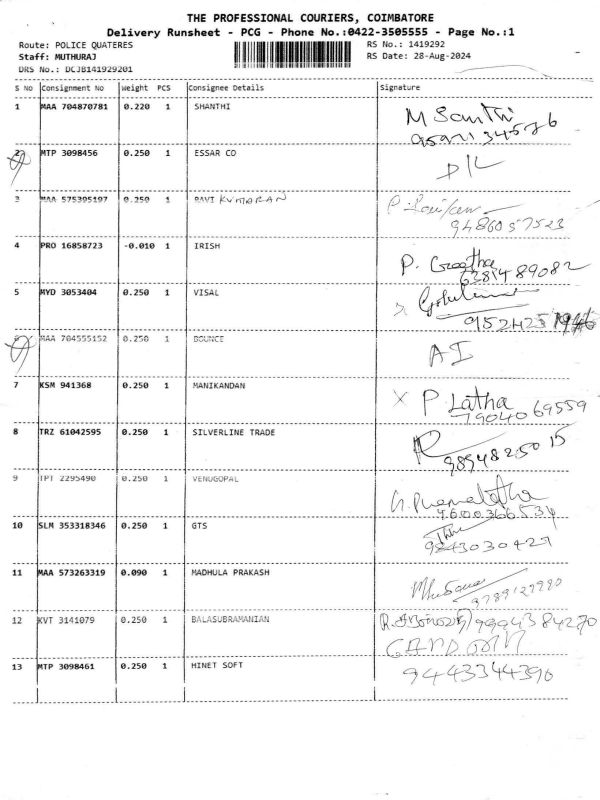 THE PROFESSIONAL COURIERS, COIMBATORE
Delivery Runsheet - PCG - Phone No.:0422-3505555 - Page No.:1
Route: POLICE QUATERES RS No.: 1419292
Staff: MUTHURAJ RS Date: 28-Aug-2024
DRS No.: DCJB141929201
S No Consignment No Weight PCS Consignee Details Signature
1 MAA 704870781 0.220 1 SHANTHI M Santhi
2 MTP 3098456 0.250 1 ESSAR CO D/L
3 MAA 575395197 0.250 1 RAVI KUMARAN
9486057523
4 PRO 16858723 -0.010 1 IRISH P. Geetha
6281489082
5 MYD 3053404 0.250 1 VISAL
6 MAA 704555152 0.250 1 BOUNCE A I
7 KSM 941368 0.250 1 MANIKANDAN X P Latha
7904069559
8 TRZ 61042595 0.250 1 SILVERLINE TRADE
9894825015
9 TPT 2295490 0.250 1 VENUGOPAL
9600366534
10 SLM 353318346 0.250 1 GTS
9843030427
11 MAA 573263319 0.090 1 MADHULA PRAKASH
9789129990
12 KVT 3141079 0.250 1 BALASUBRAMANIAN 9994384270
13 MTP 3098461 0.250 1 HINET SOFT 9443344390